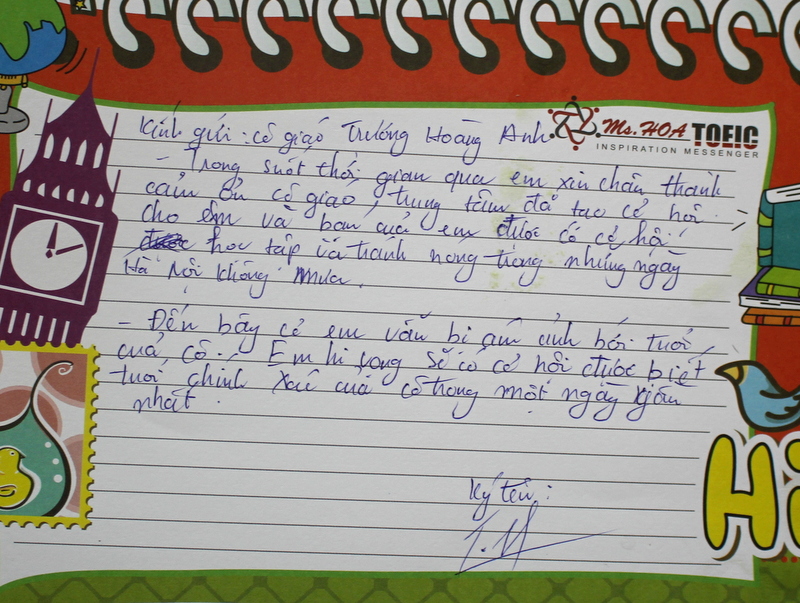 Kính gửi : cô giáo Trương Hoàng Anh.
Ms. HOA TOEIC
INSPIRATION MESSENGER
- Trong suốt thời gian qua em xin chân thành
cảm ơn cô giáo, trung tâm đã tạo cơ hội
cho em và bạn của em được có cơ hội
học tập và tránh nóng trong những ngày
Hà Nội không mưa.
- Đến bây giờ em vẫn bị ám ảnh bởi tuổi
của cô. Em hi vọng sẽ có cơ hội được biết
tuổi chính xác của cô trong một ngày gần
nhất.
Ký tên :
Hi